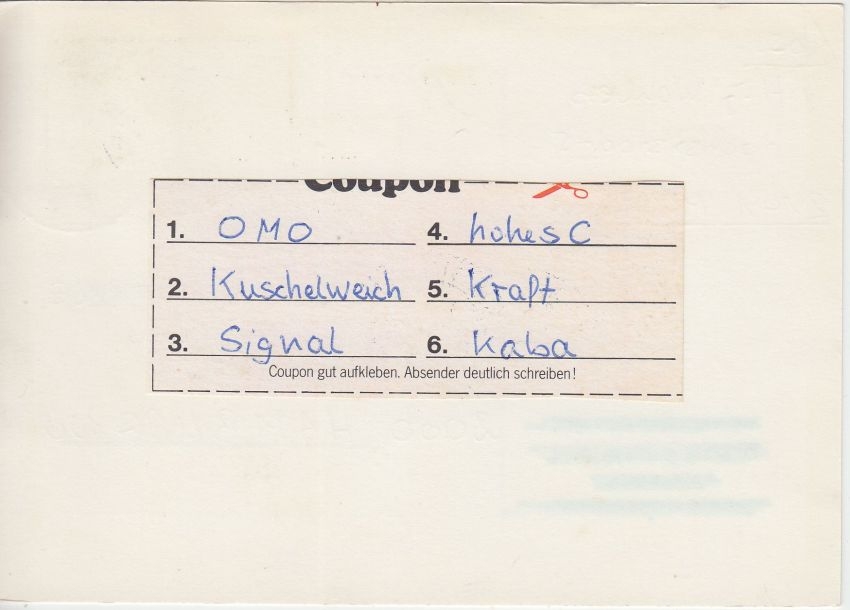 Coupon
1. OMO
2. Kuschelweich
3. Signal
4. hohes C
5. Kraft
6. Kaba
Coupon gut aufkleben. Absender deutlich schreiben!